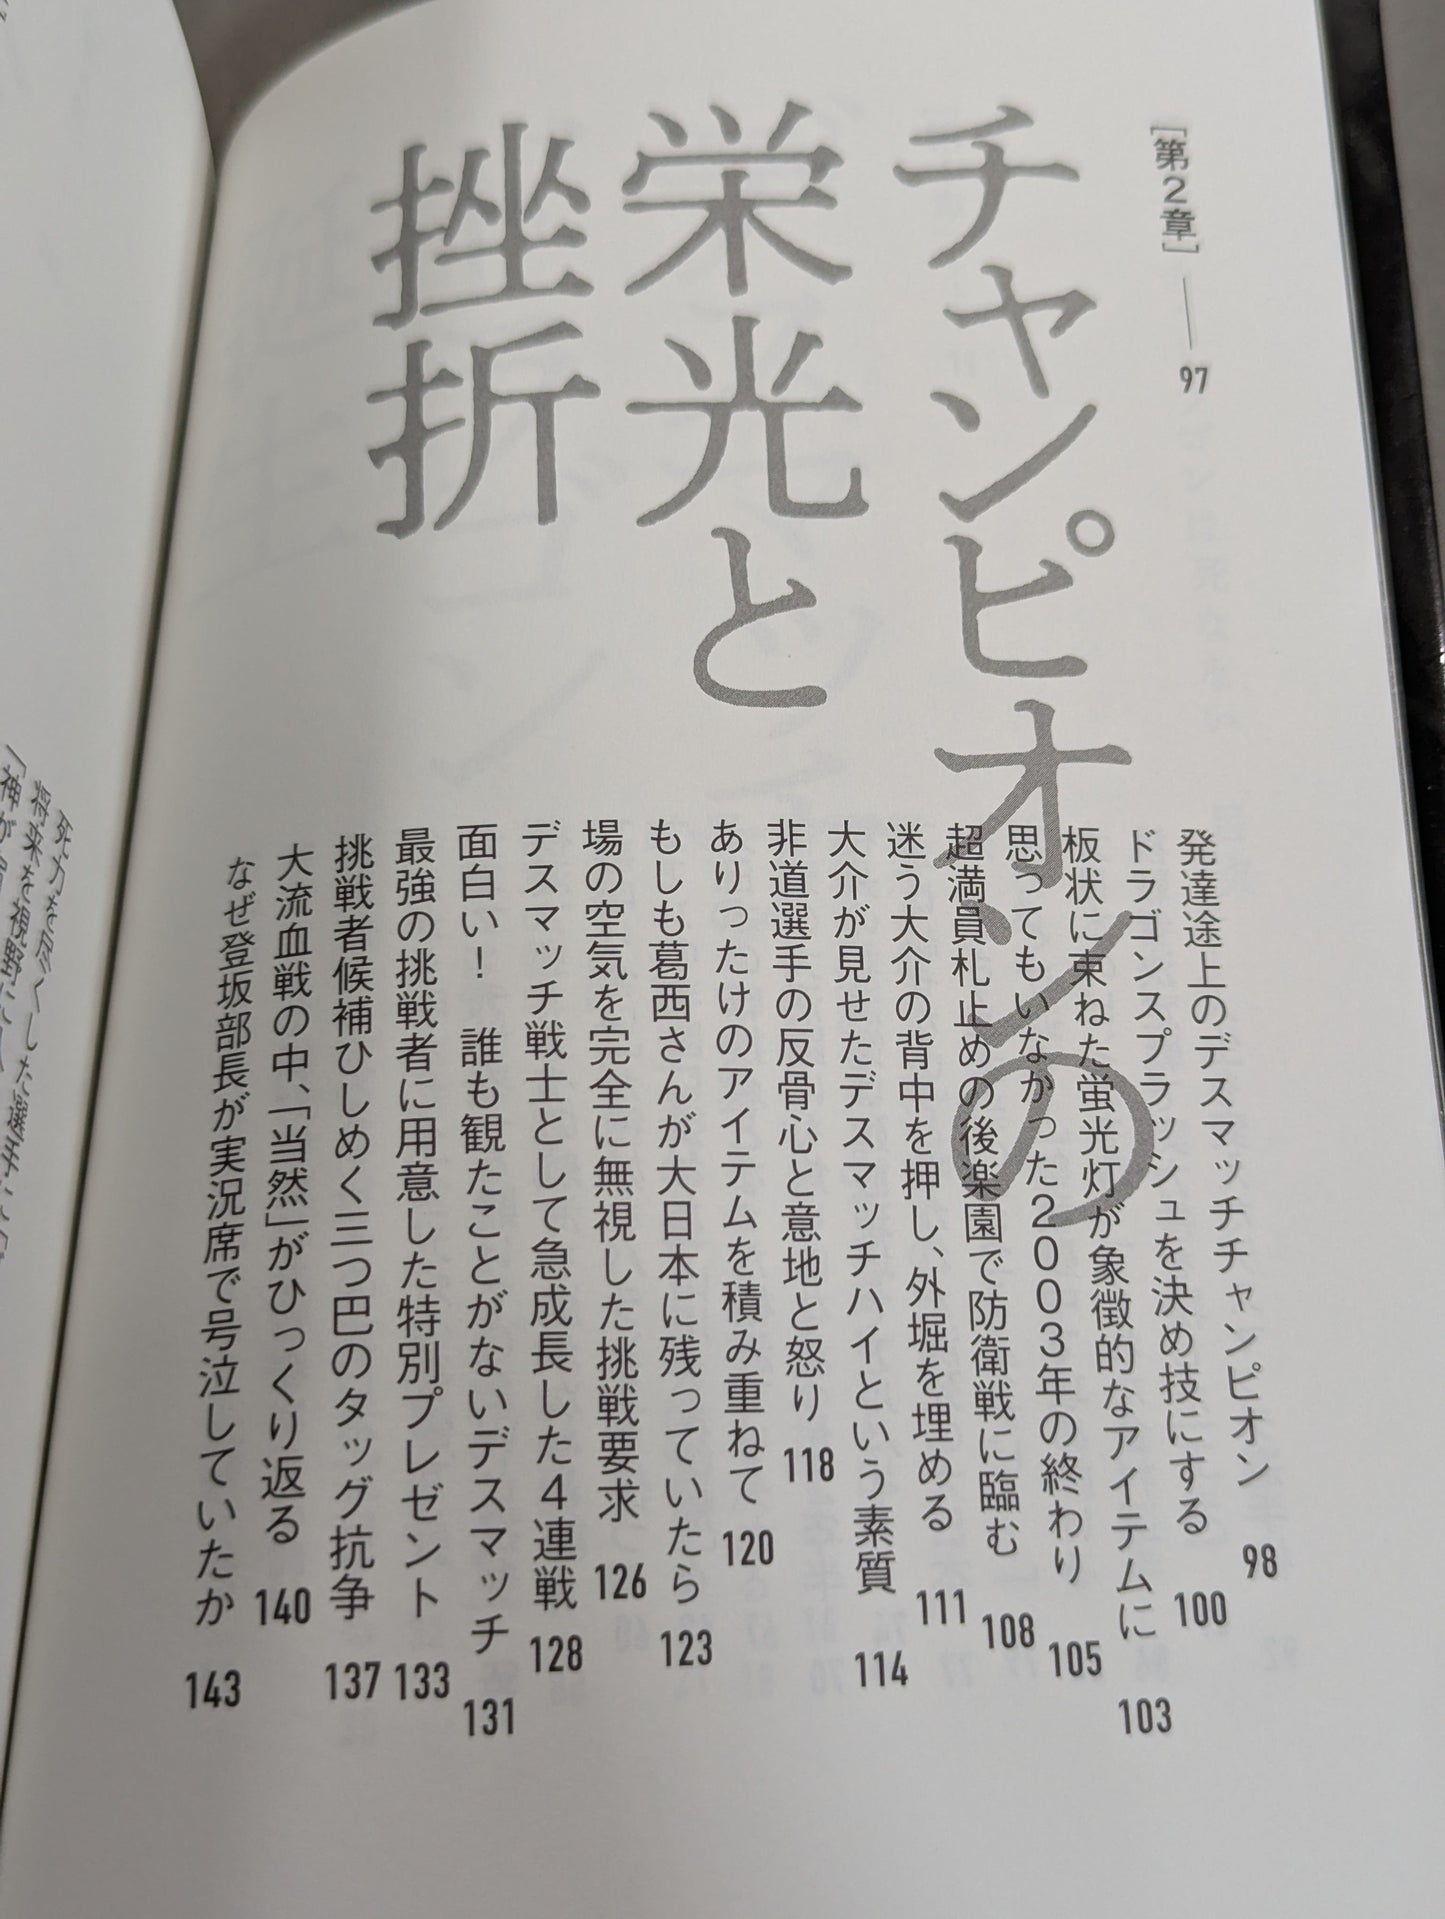 [第2章]――97
チャンピオンの
栄光と
挫折
発達途上のデスマッチチャンピオン 98
ドラゴンスプラッシュを決め技にする 100
板状に束ねた蛍光灯が象徴的なアイテムに 103
思ってもいなかった2003年の終わり 105
超満員札止めの後楽園で防衛戦に臨む 108
迷う大介の背中を押し、外堀を埋める 111
大介が見せたデスマッチハイという素質 114
非道選手の反骨心と意地と怒り 118
ありったけのアイテムを積み重ねて 120
もしも葛西さんが大日本に残っていたら 123
場の空気を完全に無視した挑戦要求 126
デスマッチ戦士として急成長した4連戦 128
面白い! 誰も観たことがないデスマッチ 131
最強の挑戦者に用意した特別プレゼント 133
挑戦者候補ひしめく三つ巴のタッグ抗争 137
大流血戦の中、「当然」がひっくり返る 140
なぜ登坂部長が実況席で号泣していたか 143
死力を尽くした選手に
将来を視野に
「神が